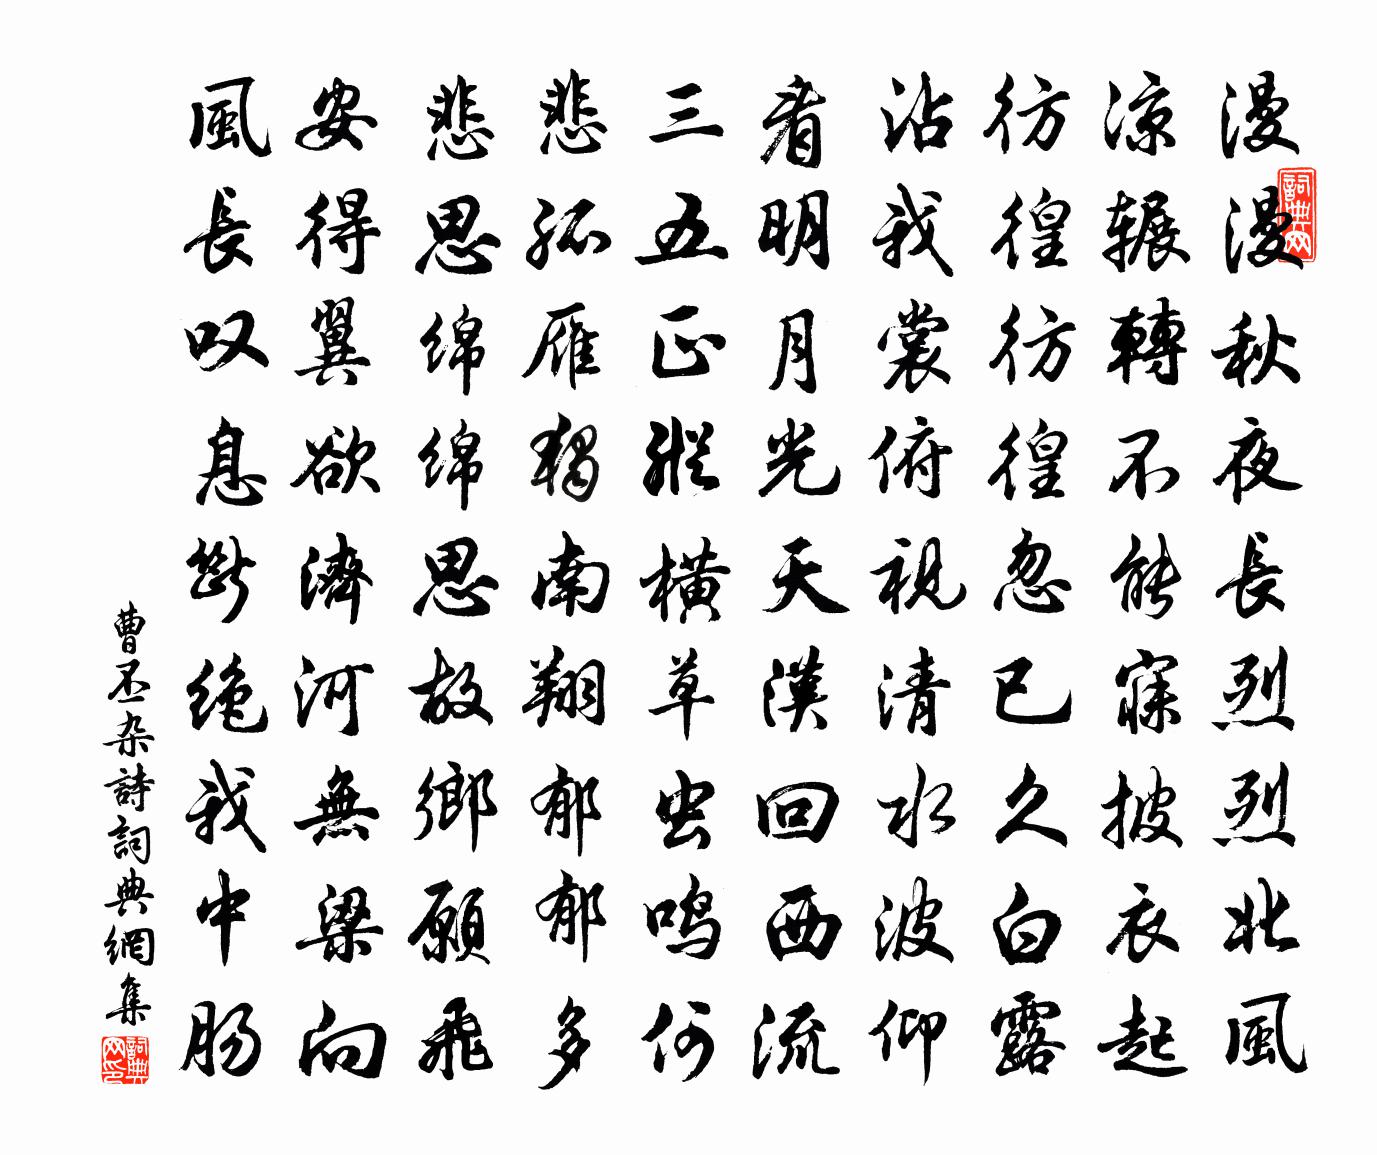 漫漫秋夜長烈烈北風
涼辗轉不能寐披衣起
彷徨彷徨忽已久白露
沾我裳俯視清水波仰
看明月光天漢回西流
三五正縱橫草虫鸣何
悲孤雁獨南翔郁郁多
悲思绵绵思故鄉願飛
安得翼欲濟河無梁向
風長叹息斷绝我中肠
曹丕杂詩詞典網集
詞典网
詞典网印